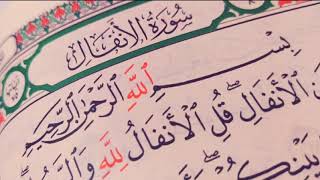 سُورَةُ الأَنفَالِ
بِسْمِ اللَّهِ الرَّحْمَٰنِ الرَّحِيمِ
الْأَنفَالِ قُلِ الْأَنفَالُ لِلَّهِ وَالرَّسُولِ